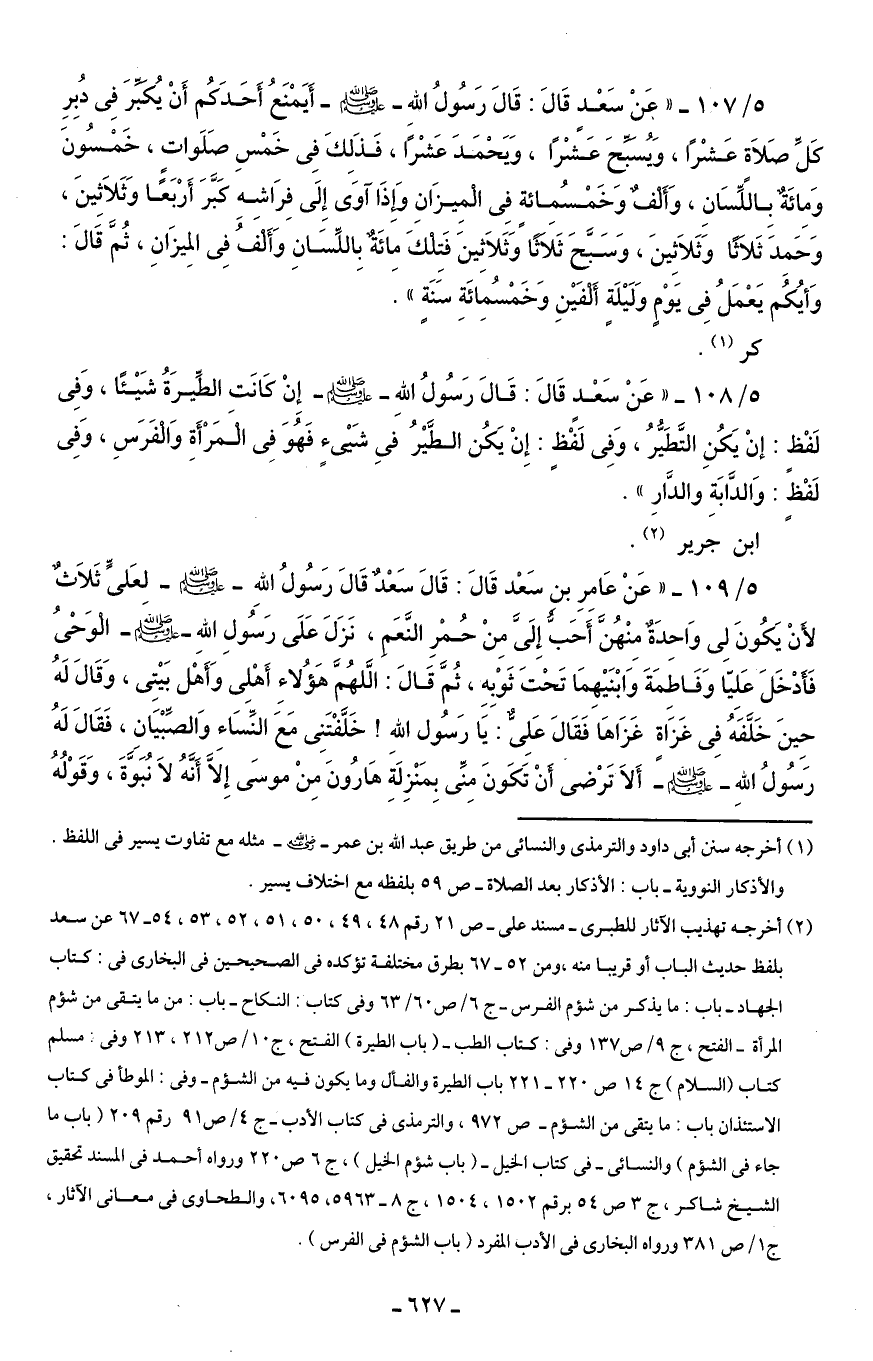 ٥/ ١٠٧ ـ « عَنْ سَعْـدٍ قَالَ : قَالَ رَسُولُ اللهِ ـ ﷺ ـ أَيَمْنَعُ أَحَـدَكُم أَنْ يُكَبِّرَ فِى دُبِرِ
كَلِّ صَلاَةٍ عَـشْرًا ، وَيُسبِّحَ عَـشْرًا ، ويَحْمَـدَ عَشْرًا ، فَـذلِكَ فِى خَمْسِ صلَوات ، خَمْـسُونَ
وَمَائَةٌ بـاللِّسَان ، وَأَلْفٌ وَخَمْـسُمـائة فِى الْميـزَان وَإذَا آوَى إلَى فِرَاشـه كَبَّرَ أَرْبَعًـا وَثَلاَثينَ ،
وَحَمدَ ثَلاَثًا وَثَلاَثينَ ، وَسَـبَّحَ ثَلاَثًا وَثَلاَثينَ فَتلْكَ مائَةٌ بِاللِّسَـان وأَلْفُ فِى المِيزَانِ ، ثُمَّ قَالَ :
وَأَيُكُم يَعْمَلُ فِى يَوْمٍ وَلَيْلَةٍ أَلْفَيْنِ وَخَمْسُمِائَةِ سَنَةٍ » .
كر (١) .
٥/ ١٠٨ ـ « عَنْ سَعْـدٍ قَالَ : قَـالَ رَسُولُ اللهِ ـ ﷺ ـ إِنْ كَانَتِ الطِّيـرَةُ شَيْـئًا ، وَفِى
لَفْظٍ : إِنْ يَكُنِ التَّطَيُّرُ ، وَفِى لَفْظٍ : إِنْ يَكُن الـطَّيْرُ فِى شَيْىءٍ فَهُوَ فِى الْـمَرْأَةِ وَالْفَرَسِ ، وَفِى
لَفْظٍ : وَالدَّابَة والدَّارِ » .
ابن جرير (٢) .
٥/ ١٠٩ ـ « عَنْ عَامِرِ بنِ سَعْد قَالَ : قَالَ سَعْدٌ قَالَ رَسُولُ اللهِ ـ ﷺ ـ لِعَلىٍّ ثَلاَثٌ
لأَنْ يَكُونَ لِى وَاحدَةٌ منْهُنَّ أَحَبُّ إِلَىَّ مِنْ حُـمْرِ النَّعَمِ ، نَزَلَ عَلَى رَسُولِ اللهِ ـ ﷺ ـ الْوَحْىُ
فَأَدْخَلَ عَليًا وَفَـاطمَةَ وَابْنَيْهِمَا تَحْتَ ثَوْبِه ، ثُمَّ قَـالَ : الَّلهُمَّ هَؤُلاَء أَهْلى وَأَهْل بَيْتى ، وَقَالَ لَهُ
حينَ خَلَّفَهُ فِى غَزَاةِ غَزَاهَا فَقَالَ عَلىٌّ : يَا رَسُولَ الله ! خَلَّفْتَنى مَعَ النِّسَاء وَالصِّبْيَان ، فَقَالَ لَهُ
رَسُولُ اللهِ ـ ﷺ ـ أَلاَ تَرْضَى أَنْ تَكُونَ مِنِّى بِمَنْزِلَةِ هَارُونَ مِنْ موسَى إِلاَّ أَنَّهُ لاَ نُبَوَّةَ ، وَقَوْلُهُ
(١) أخرجه سنن أبى داود والترمذى والنسائى من طريق عبد الله بن عمر ـ رضي الله عنه ـ مثله مع تفاوت يسير فى اللفظ .
والأذكار النووية ـ باب : الأذكار بعد الصلاة ـ ص ٥٩ بلفظه مع اختلاف يسير .
(٢) أخرجـه تهذيب الآثار للطبرى ـ مسند على ـ ص ٢١ رقم ٤٨ ، ٤٩ ، ٥٠ ، ٥١ ، ٥٢ ، ٥٣ ، ٥٤ـ ٦٧ عن سعد
بلفظ حديث الباب أو قريبا منه ،ومن ٥٢ ـ ٦٧ بطرق مختلفـة تؤكده فى الصحيحين فى البخارى فى : كتـاب
الجهـاد ـ باب : ما يذكـر من شؤم الفرس ـ ج ٦/ ص٦٠/ ٦٣ وفى كتاب : النكاح ـ باب : من ما يتقى من شؤم
المرأة ـ الفتح ، ج ٩/ ص١٣٧ وفى : كتاب الطب ـ ( باب الطيرة ) الفـتح ، ج١٠/ ص٢١٢ ، ٢١٣ وفى : مسلم
كتـاب (السلام ) ج ١٤ ص ٢٢٠ ـ ٢٢١ باب الطيرة والفـأل وما يكون فيـه من الشـؤم ـ وفى : الموطأ فى كتاب
الاستئذان باب : ما يتقى من الشـؤم ـ ص ٩٧٢ ، والترمذى فى كتاب الأدب ـ ج ٤/ ص٩١ رقم ٢٠٩ ( باب ما
جاء فى الشؤم ) والنسـائى ـ فى كتاب الخيل ـ ( باب شؤم الخيل ) ، ج ٦ ص ٢٢٠ ورواه أحـمـد فى المسند تحقيق
الشـيـخ شاكـر ، ج ٣ ص ٥٤ برقم ١٥٠٢ ، ١٥٠٤ ، ج ٨ ـ ٥٩٦٣، ٦٠٩٥، والـطحـاوى فى مـعـانى الآثار ،
ج١/ ص ٣٨١ ورواه البخارى فى الأدب المفرد ( باب الشؤم فى الفرس ) .
ـ ٦٢٧ ـ